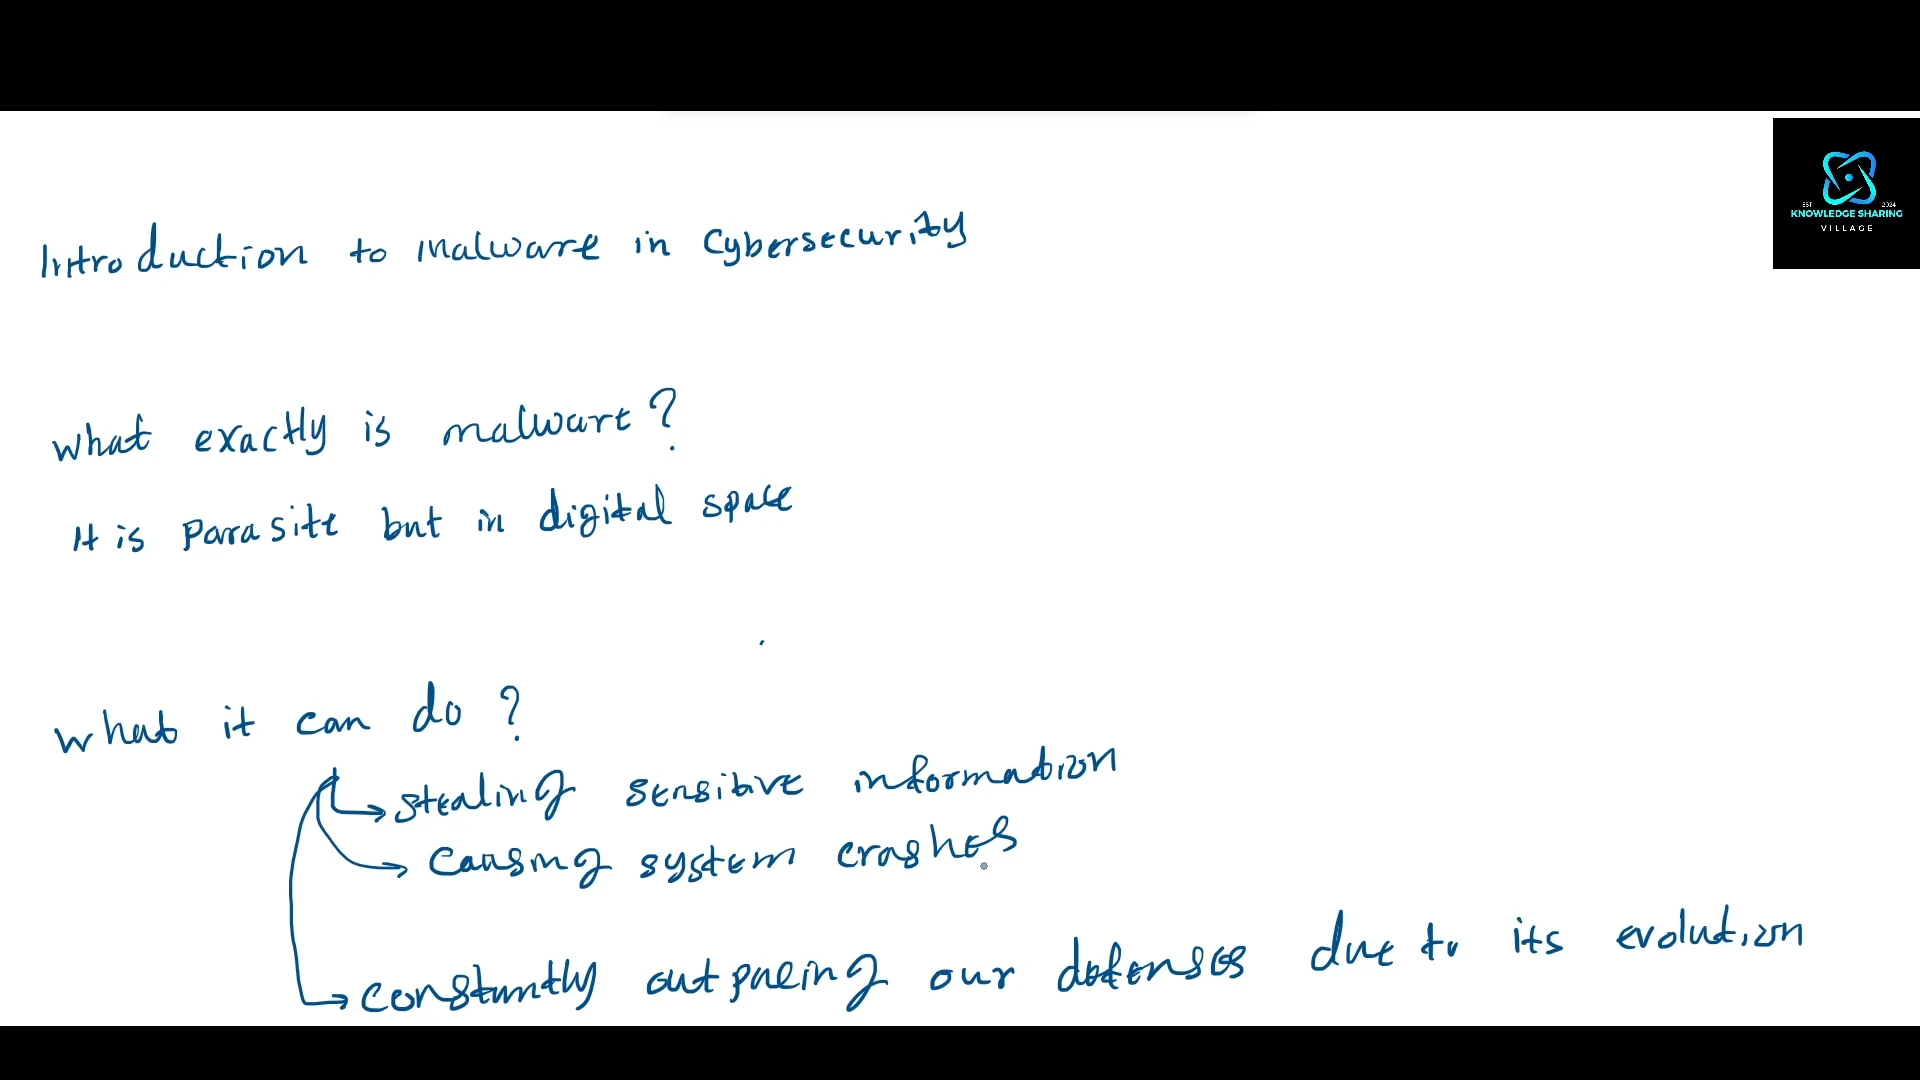 Introduction to malware in Cybersecurity
EST 2024
KNOWLEDGE SHARING
VILLAGE
What exactly is malware?
It is Parasite but in digital space
What it can do ?
stealing sensitive information
Causing system crashes
constantly outpacing our defenses due to its evolution